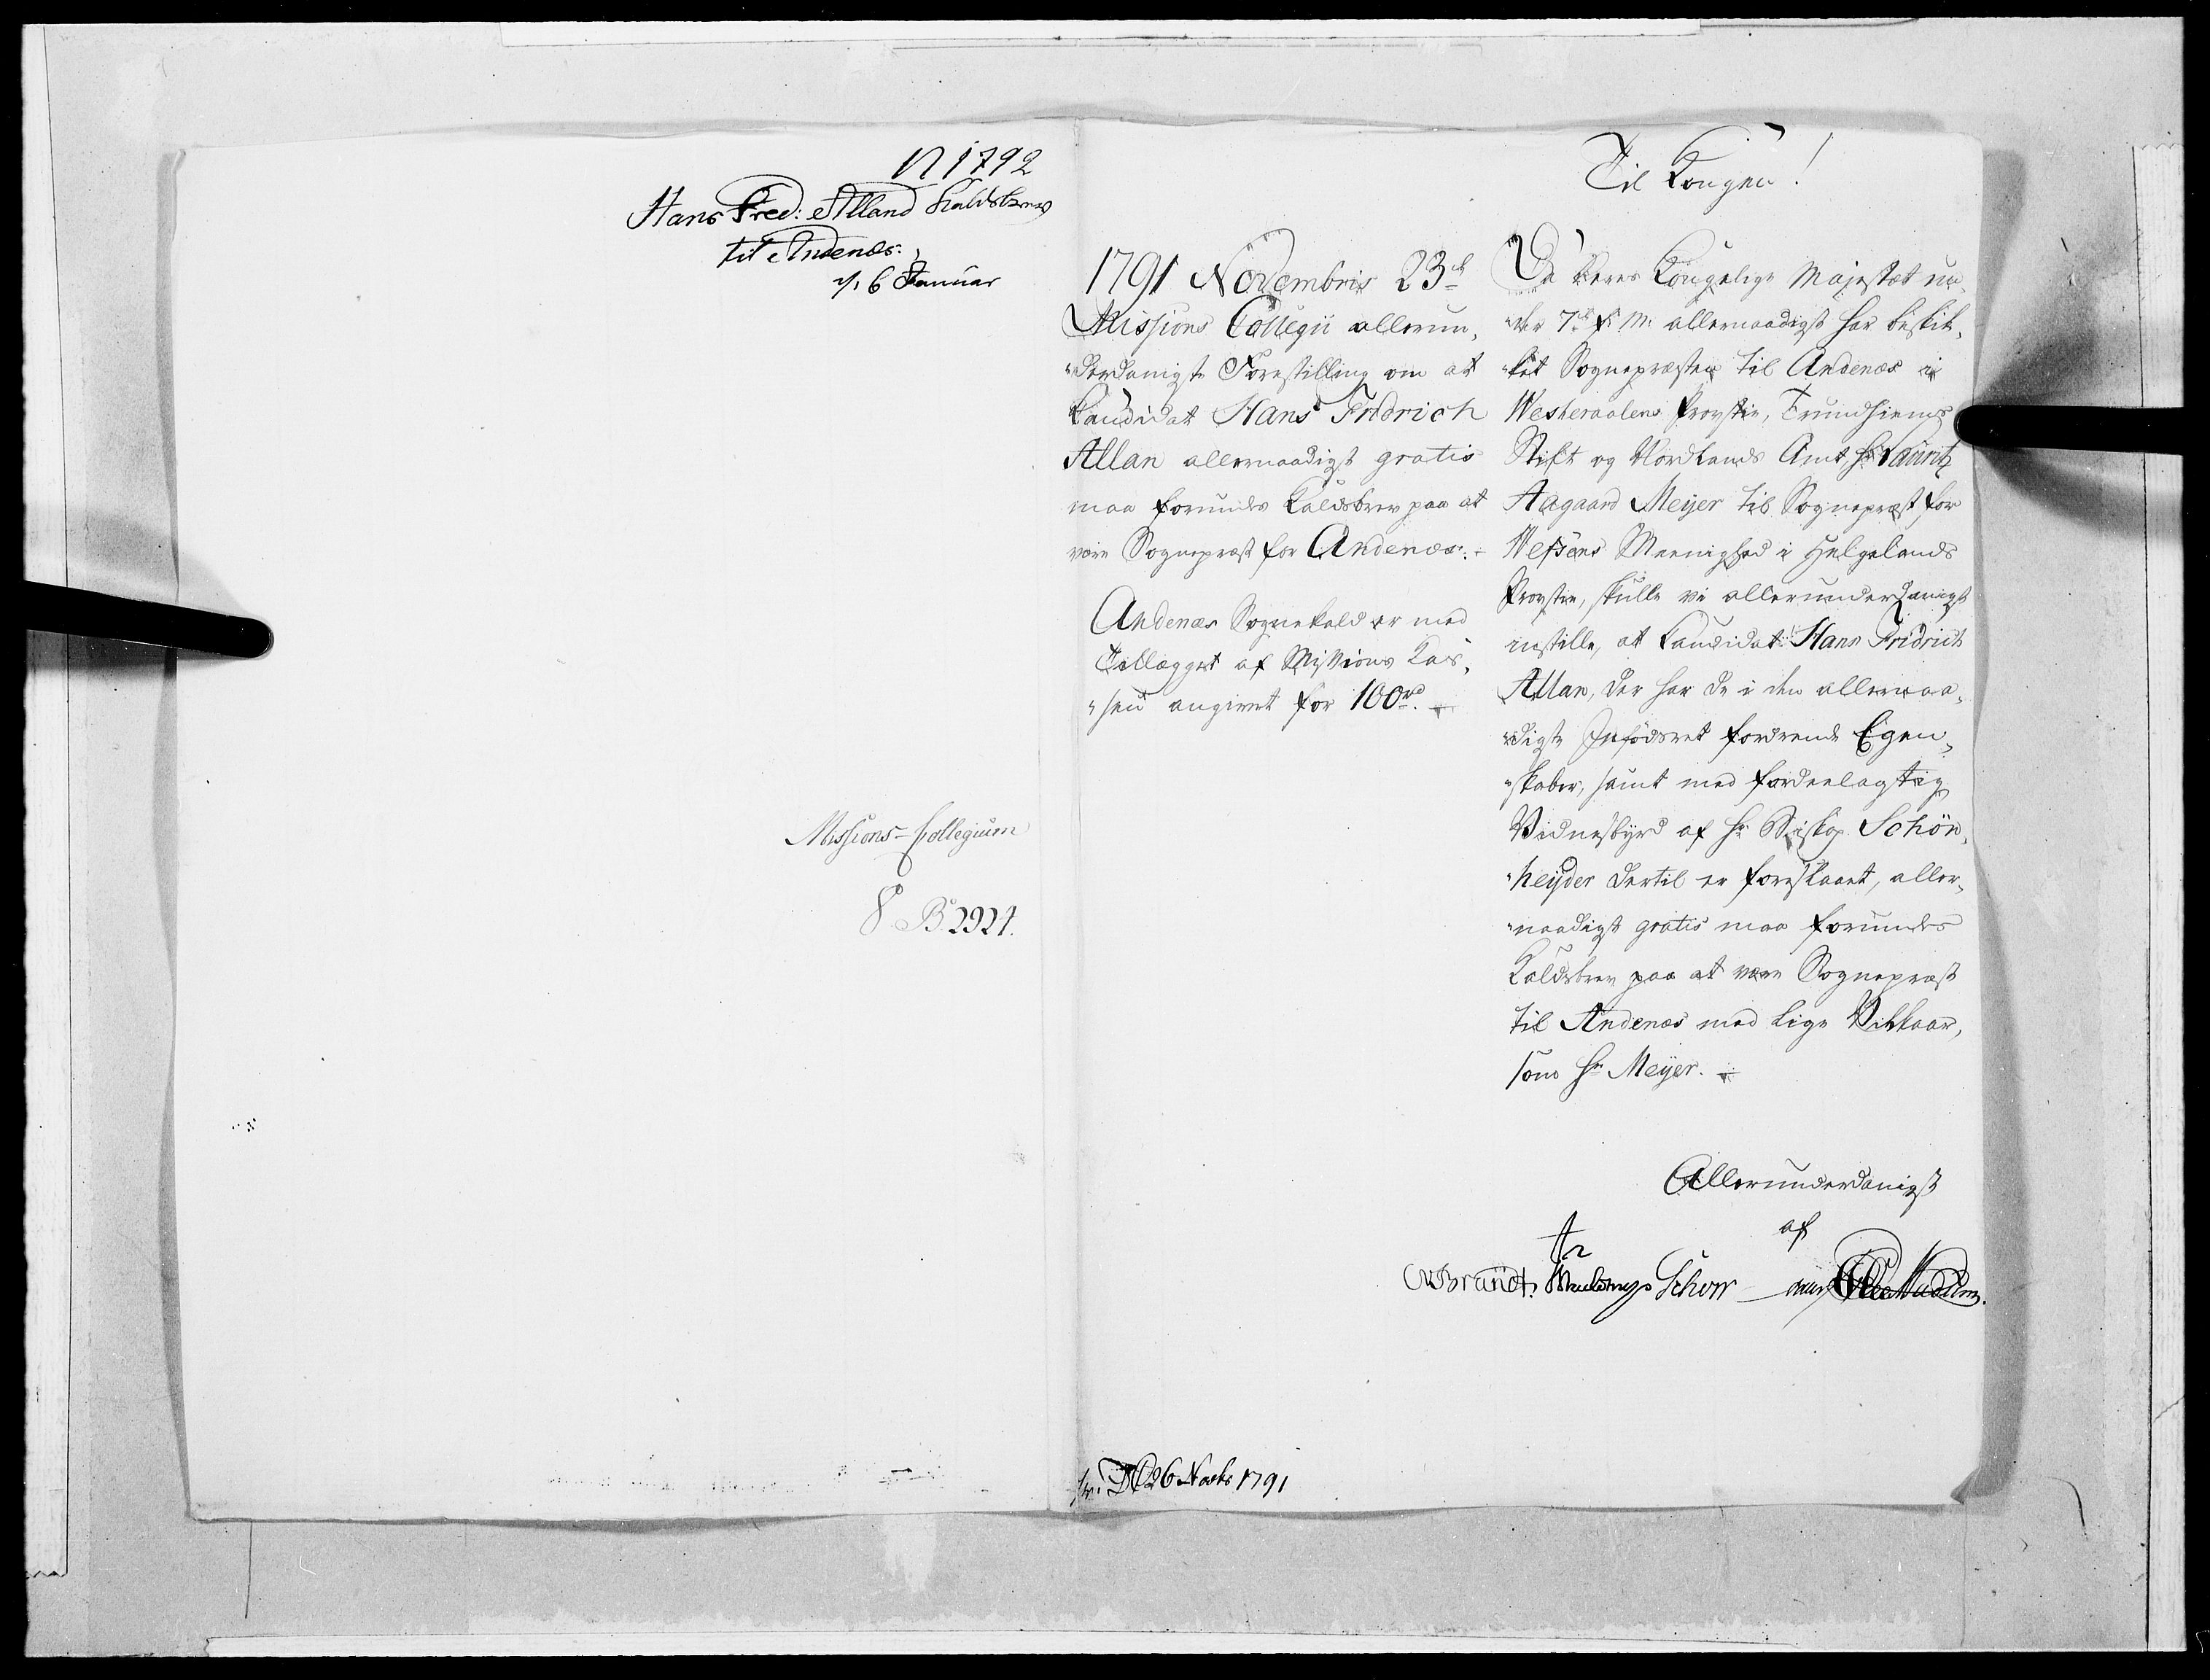 N 1792
Hans Fred: Alland Kaldsbrev
til Andenæs:
d. 6 Januar
Missions-Collegium
8 B. 2924.
1791 Novembris 23d
Missions Collegii allerun„
„derdanigste Forestilling om at
Candidat Hans Fridrich
Allan allernaadigst gratis
maa forundes Kaldsbrev paa at
være Sognepræst for Andenæs. ÷
Andenæs Sognekald er med
Tillægget af Missions Cas„
„sen angivet for 100rd. ÷
Til Kongen!
Da Deres Kongelige Majestæt un„
„der 7de f: M: allernaadigst har beskik„
„ket Sognepræsten til Andenæs i
Westeraalens Provstie, Trundhiems
Stift og Nordlands Amt, Hr Lauritz
Aagaard Meyer til Sognepræst for
Vefsens Meenighed i Helgelands
Provstie, skulle vi allerunderdanigst
instille, at Candidat Hans Fridrich
Allan, der har de i den allernaa„
„digste Infødsret fordrende Egen„
„skaber, samt med fordeelagtig
Vidnesbyrd af Hr Biskop Schön„
„heyder dertil er foreslaaet, aller„
„naadigst gratis maa forundes
Kaldsbrev paa at være Sognepræst
til Andenæs med lige Vilkaar,
som Hr Meyer. ÷
Allerunderdanigst
af
Brandt. Schow
26 Novbr 1791